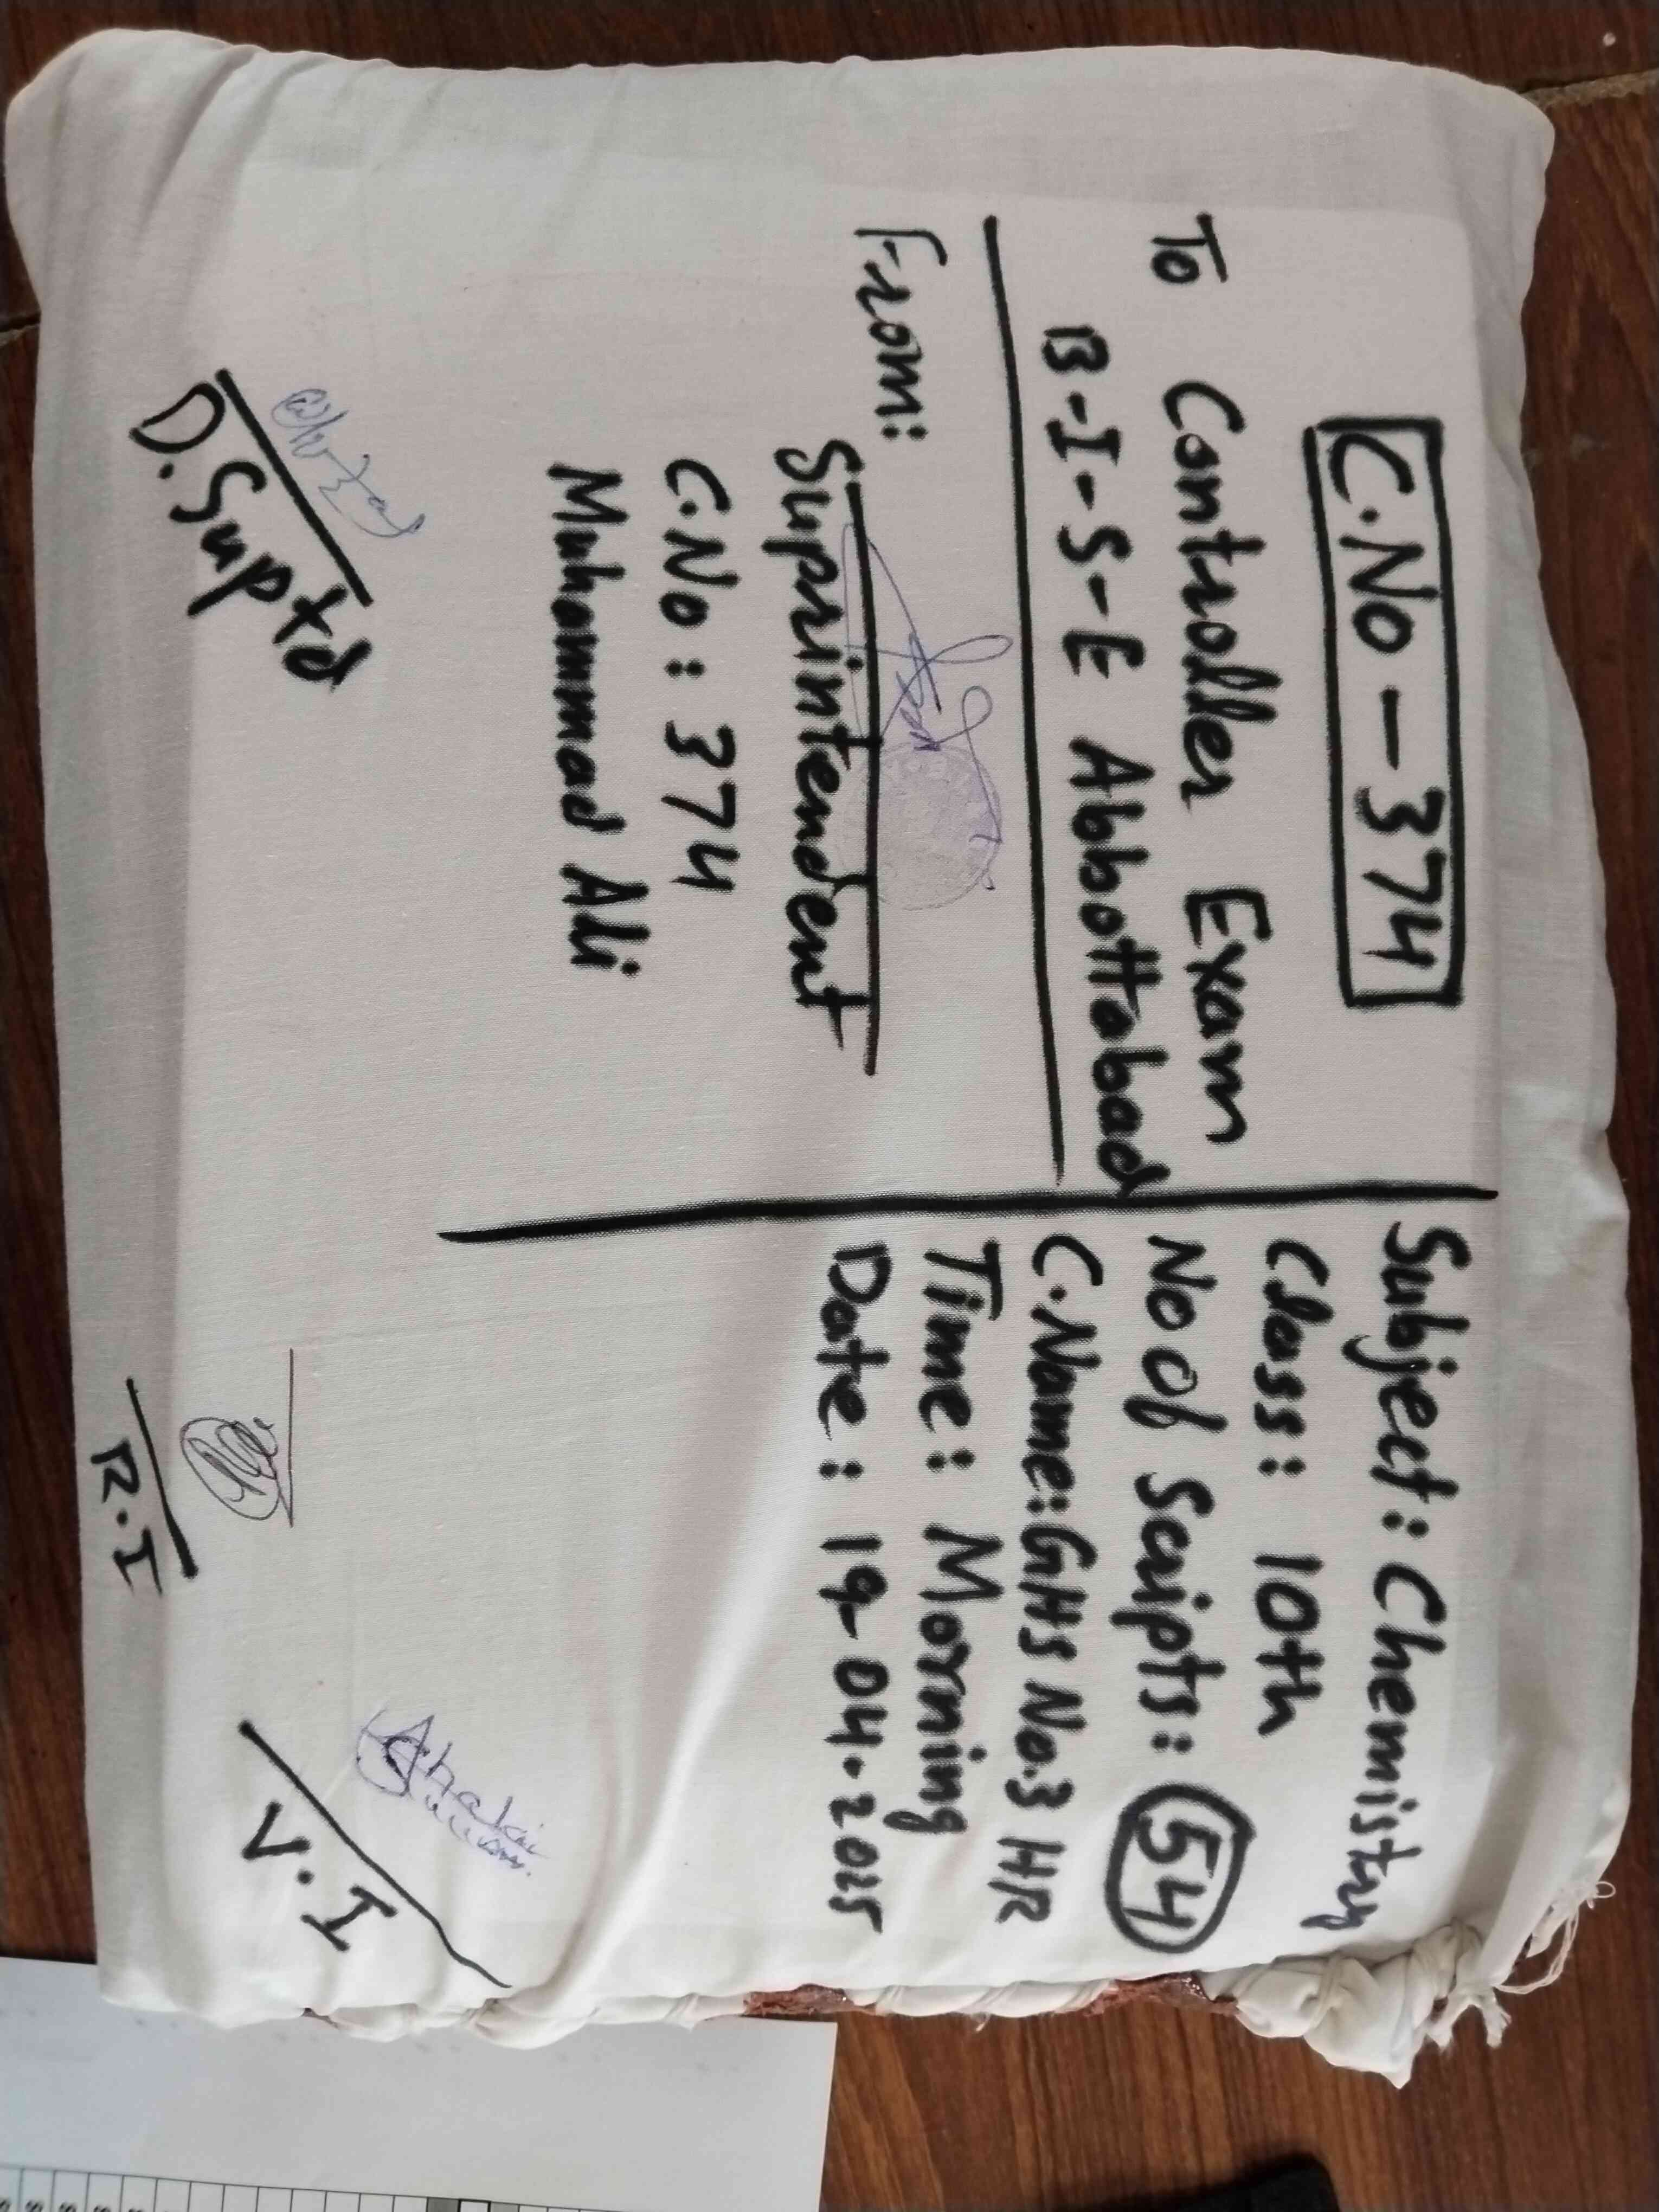 C.No - 374
To Controller Exam
B-I-S-E Abbottabad
From:
Suprintendent
C.No : 374
Muhammad Ali
D.Suptd
Subject: Chemistry
Class: 10th
No of Scripts: 54
C.Name: GHS No.3 HR
Time: Morning
Date: 19-04.2025
R.I
V.I